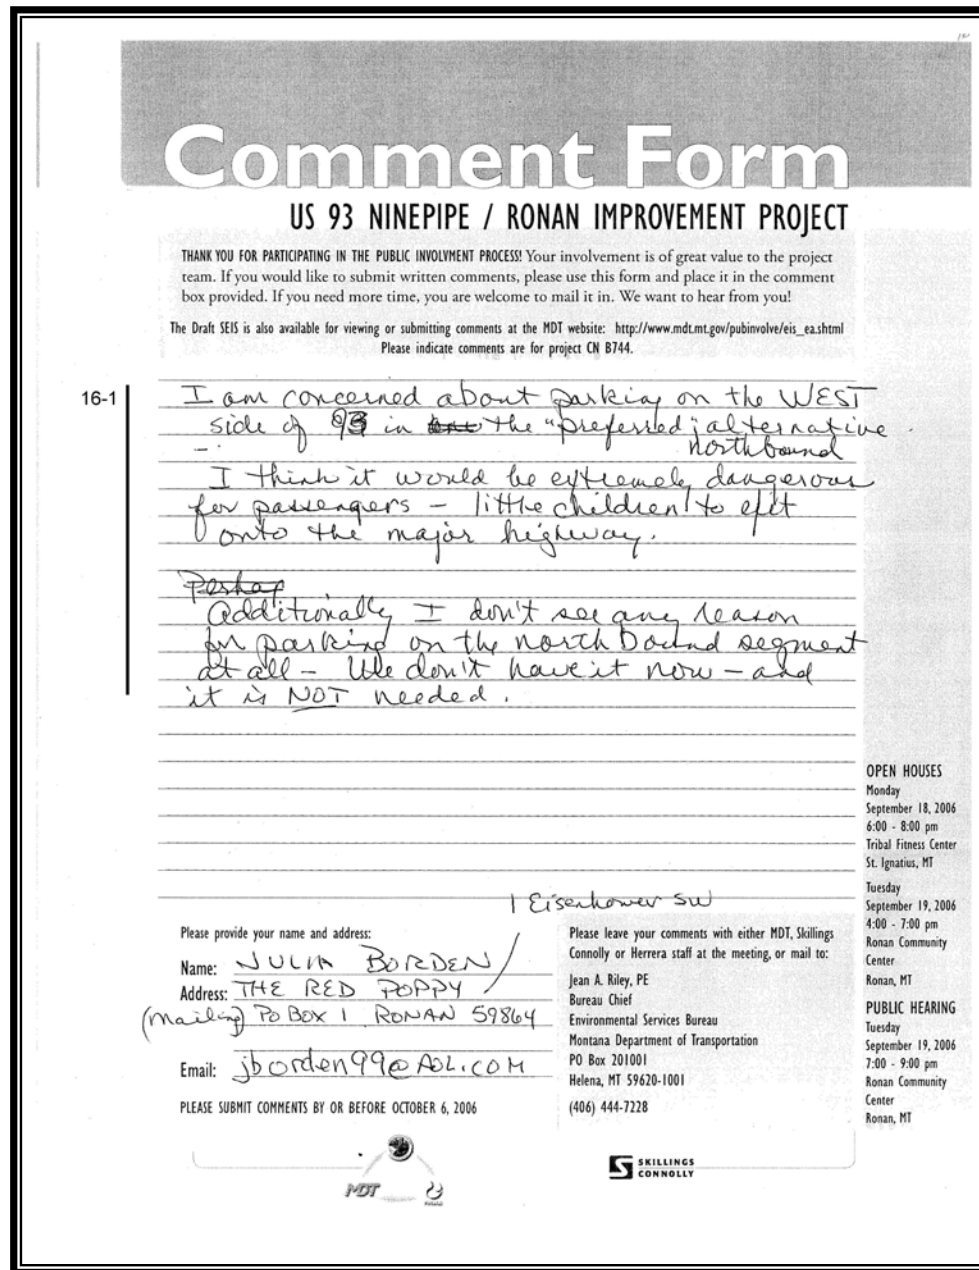 Comment Form
US 93 NINEPIPE / RONAN IMPROVEMENT PROJECT
THANK YOU FOR PARTICIPATING IN THE PUBLIC INVOLVMENT PROCESS! Your involvement is of great value to the project
team. If you would like to submit written comments, please use this form and place it in the comment
box provided. If you need more time, you are welcome to mail it in. We want to hear from you!
The Draft SEIS is also available for viewing or submitting comments at the MDT website: http://www.mdt.mt.gov/pubinvolve/eis_ea.shtml
Please indicate comments are for project CN B744.
16-1
I am concerned about parking on the WEST
side of 93 in the "preferred" alternative.
northbound
I think it would be extremely dangerous
for passengers – little children to exit
onto the major highway.
Perhap
Additionally I don't see any reason
for parking on the north bound segment
at all – We don't have it now – and
it is NOT needed.
1 Eisenhower SW
Please provide your name and address:
Name: JULIA BORDEN
Address: THE RED POPPY
(mailing) PO BOX 1 RONAN 59864
Email: jborden99@AOL.COM
PLEASE SUBMIT COMMENTS BY OR BEFORE OCTOBER 6, 2006
Please leave your comments with either MDT, Skillings
Connolly or Herrera staff at the meeting, or mail to:
Jean A. Riley, PE
Bureau Chief
Environmental Services Bureau
Montana Department of Transportation
PO Box 201001
Helena, MT 59620-1001
(406) 444-7228
OPEN HOUSES
Monday
September 18, 2006
6:00 - 8:00 pm
Tribal Fitness Center
St. Ignatius, MT
Tuesday
September 19, 2006
4:00 - 7:00 pm
Ronan Community
Center
Ronan, MT
PUBLIC HEARING
Tuesday
September 19, 2006
7:00 - 9:00 pm
Ronan Community
Center
Ronan, MT
MDT
SKILLINGS
CONNOLLY